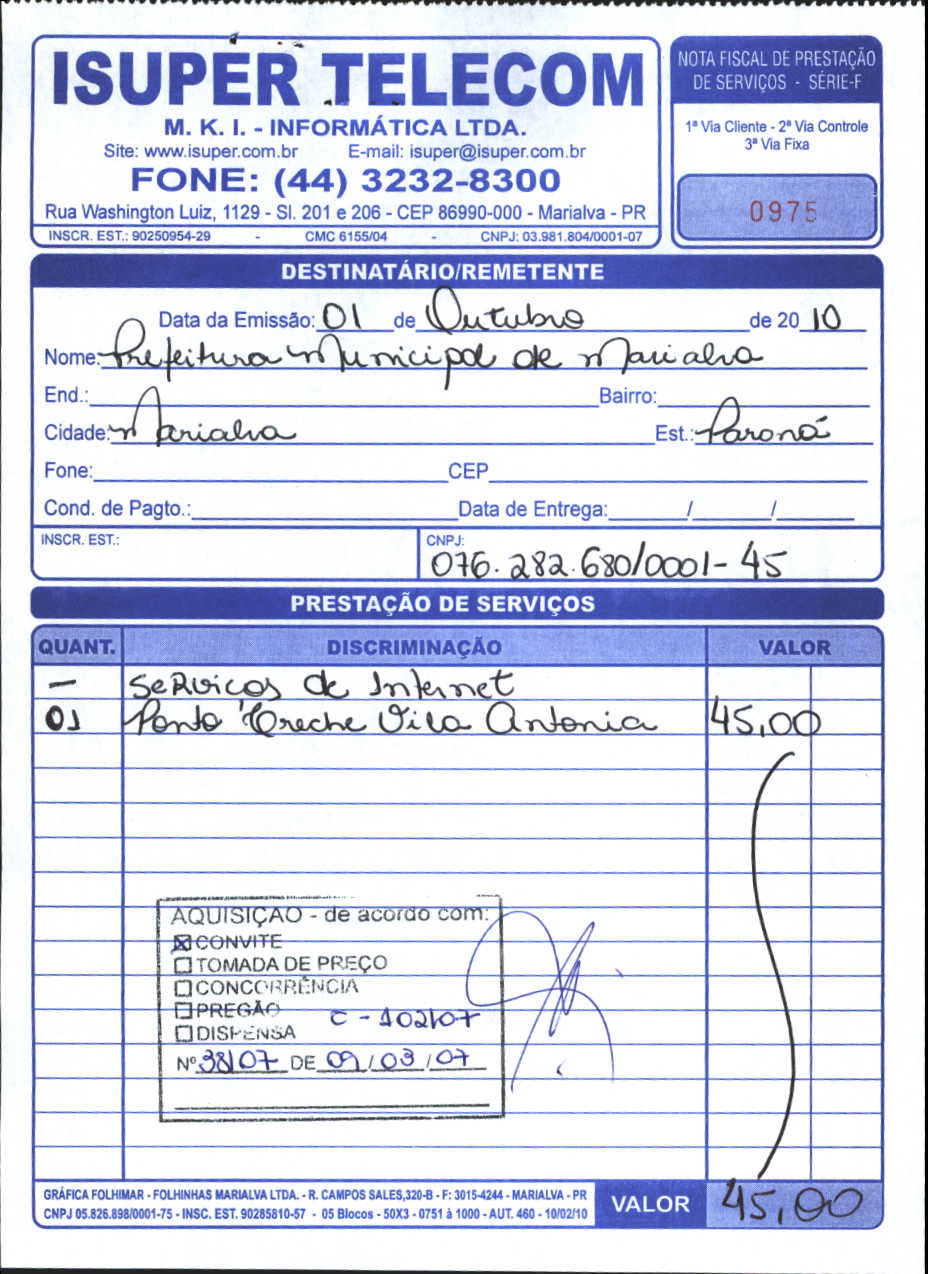 ISUPER TELECOM
M. K. I. - INFORMÁTICA LTDA.
Site: www.isuper.com.br E-mail: isuper@isuper.com.br
FONE: (44) 3232-8300
Rua Washington Luiz, 1129 - Sl. 201 e 206 - CEP 86990-000 - Marialva - PR
INSCR. EST.: 90250954-29 - CMC 6155/04 - CNPJ: 03.981.804/0001-07
NOTA FISCAL DE PRESTAÇÃO
DE SERVIÇOS - SÉRIE-F
1ª Via Cliente - 2ª Via Controle
3ª Via Fixa
0975
DESTINATÁRIO/REMETENTE
Data da Emissão: 01 de Outubro de 20 10
Nome: Prefeitura Municipal de Marialva
End.: Bairro:
Cidade: Marialva Est.: Paraná
Fone: CEP
Cond. de Pagto.: Data de Entrega: / /
INSCR. EST.: CNPJ:
076.282.680/0001-45
PRESTAÇÃO DE SERVIÇOS
QUANT. DISCRIMINAÇÃO VALOR
— Serviços de Internet
01 Ponto Creche Vila Antonia 45,00
AQUISIÇÃO - de acordo com:
☒ CONVITE
☐ TOMADA DE PREÇO
☐ CONCORRÊNCIA
☐ PREGÃO
C - 102/07
☐ DISPENSA
Nº 38/07 DE 09/03/07
GRÁFICA FOLHIMAR - FOLHINHAS MARIALVA LTDA. - R. CAMPOS SALES,320-B - F: 3015-4244 - MARIALVA - PR
CNPJ 05.826.898/0001-75 - INSC. EST. 90285810-57 - 05 Blocos - 50X3 - 0751 à 1000 - AUT. 460 - 10/02/10
VALOR 45,00